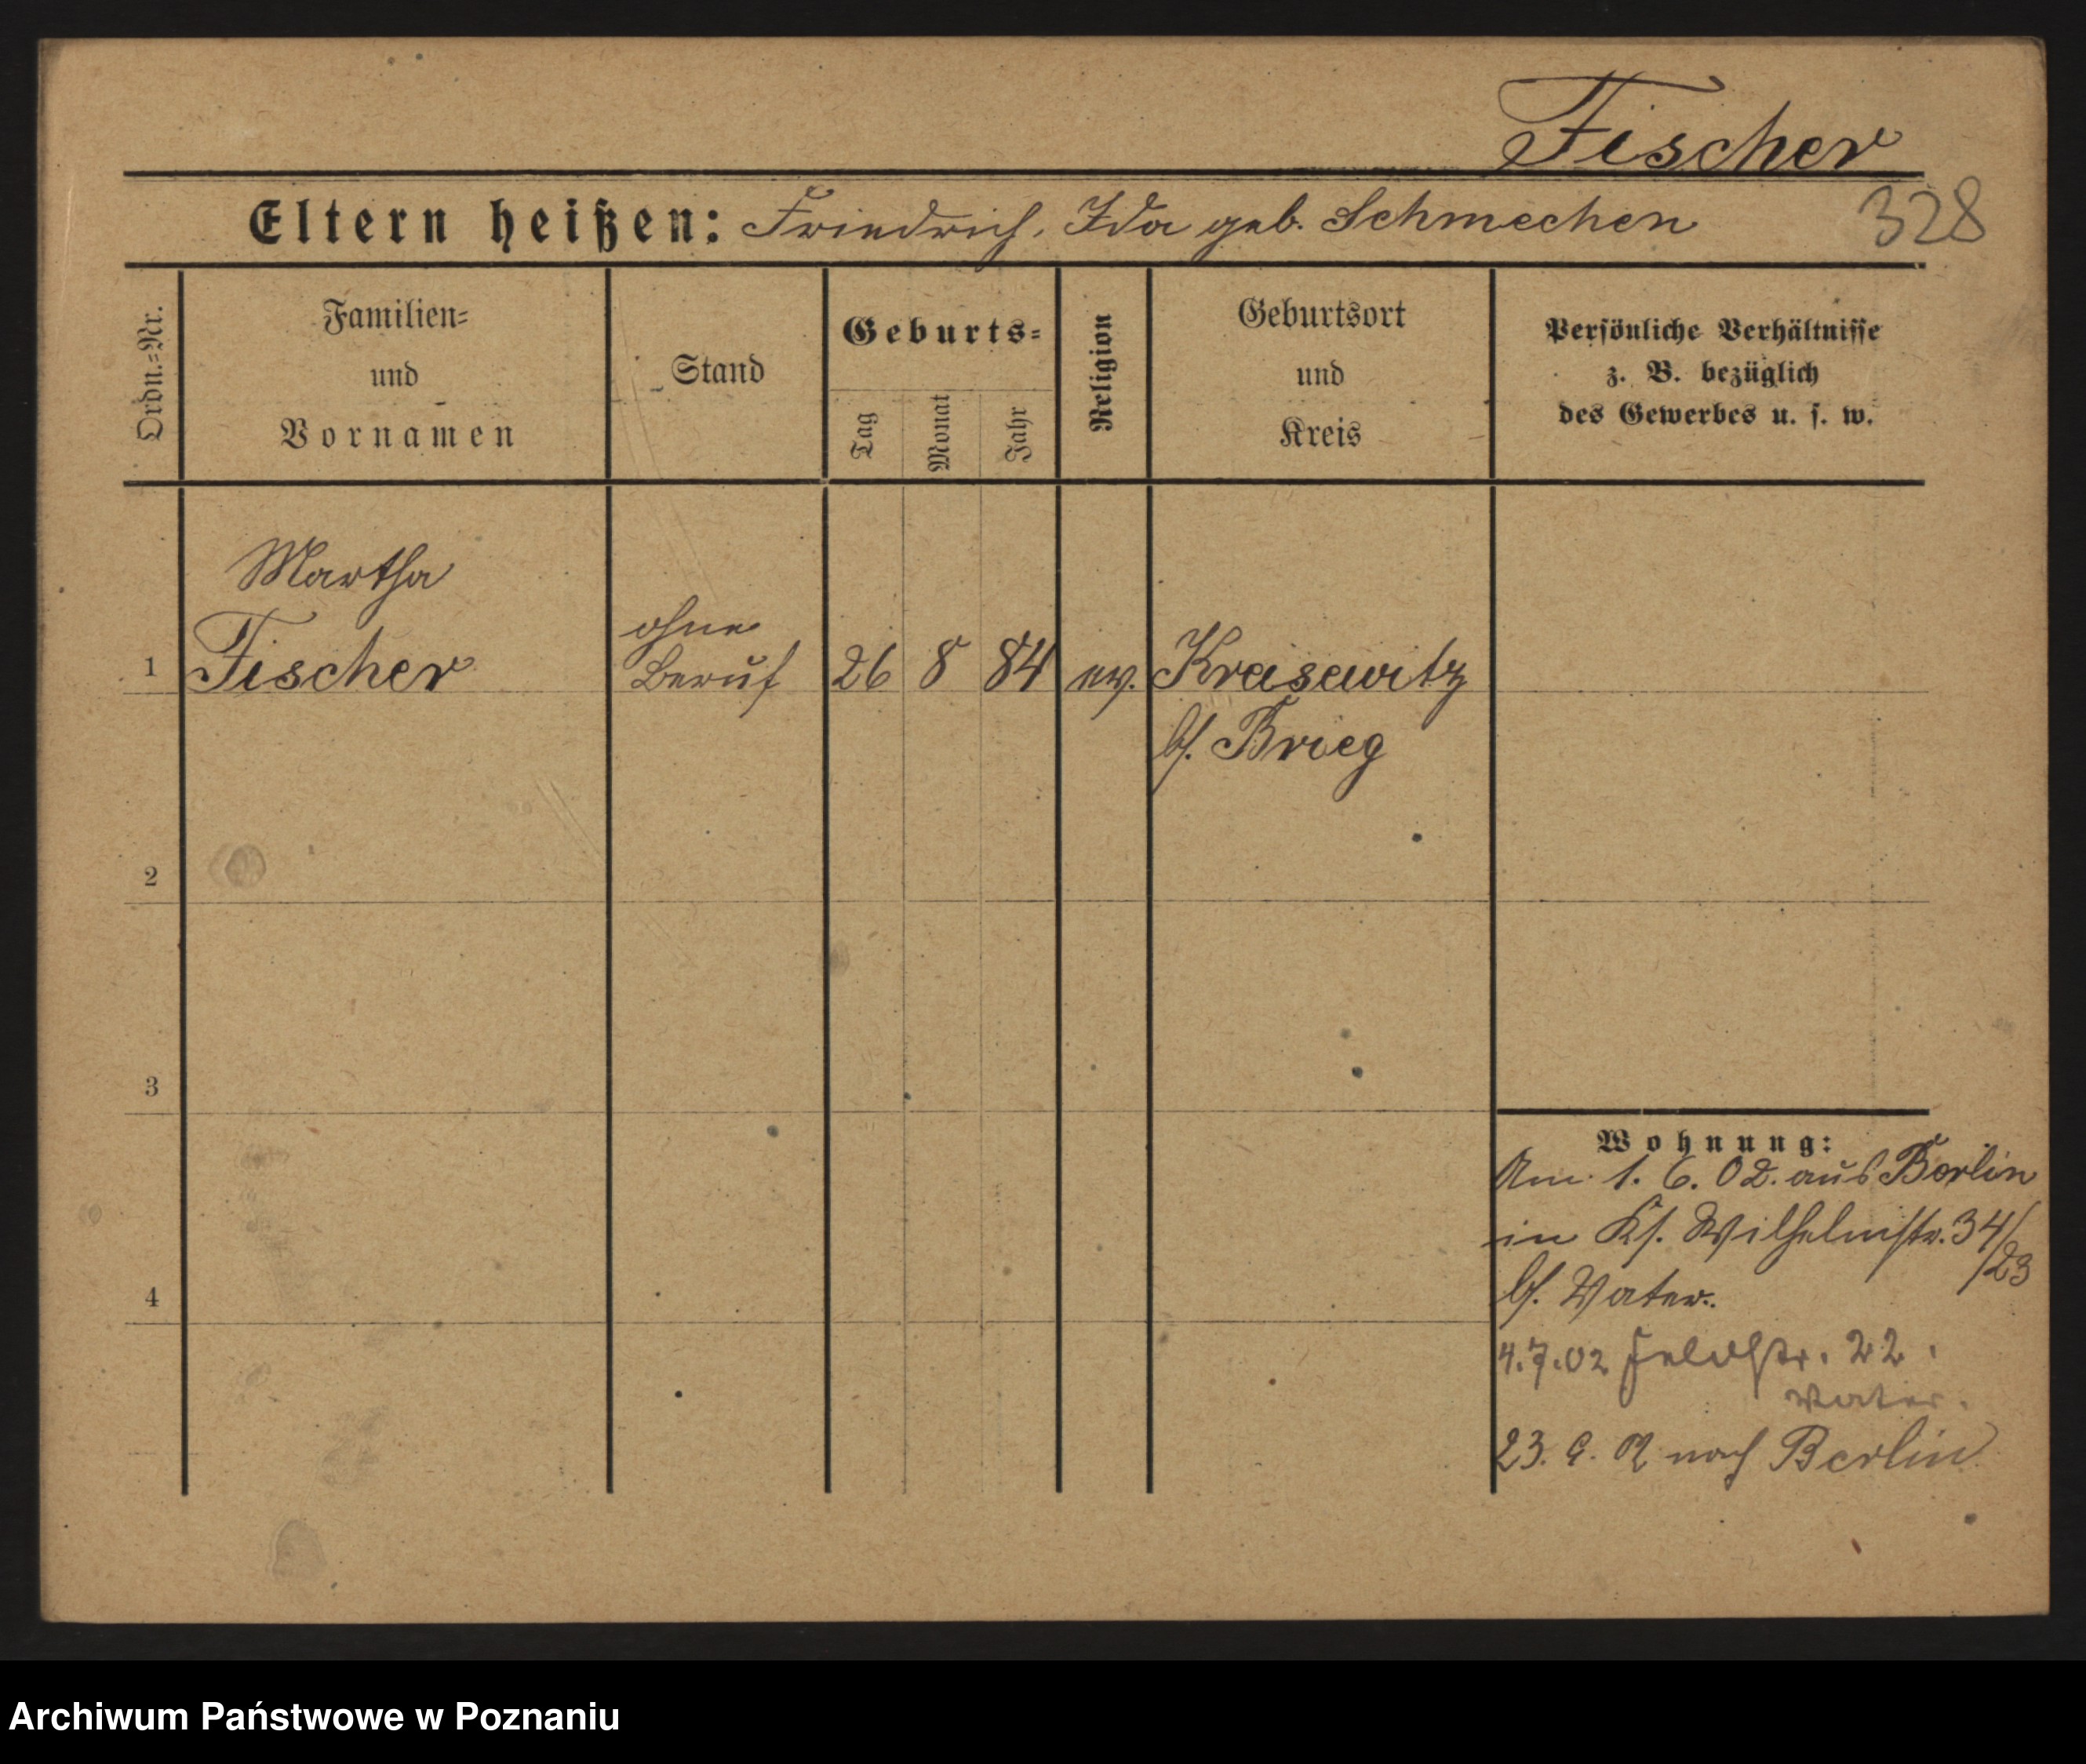 Fischer
Eltern heißen: Friedrich, Ida geb. Schmechen 328
Ordn.=Nr.
Familien=
und
Vornamen
Stand
Geburts=
Tag
Monat
Jahr
Religion
Geburtsort
und
Kreis
Persönliche Verhältnisse
z. B. bezüglich
des Gewerbes u. s. w.
Martha
1 Fischer
ohne
Beruf
26 8 84 ev. Kreisewitz
bh. Brieg
2
3
4
Wohnung:
Am 1. 6. 02. aus Berlin
in Kh. Wilhelmstr. 34/23
bh. Vater.
4.7.02 Feldstr. 22.
Vater.
23. 9. 02 nach Berlin
Archiwum Państwowe w Poznaniu